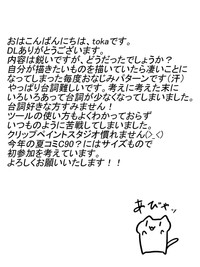 おはこんばんにちは、tokaです。
DLありがとうございます。
内容は鋭いですが、どうだったでしょうか?
自分が描きたいものを描いていたら凄いことに
なってしまった毎度おなじみパターンです(汗)
やっぱり台詞難しいです。考えに考えた末に
いろいろあって台詞が少なくなってしまいました。
台詞好きな方すみません!
ツールの使い方もよくわかっておらず
いつものように苦戦してしまいました。
クリップペイントスタジオ慣れません(>_<)
今年の夏コミC90?にはサイズもので
初参加を考えています。
よろしくお願いいたします!!
あひゃッ